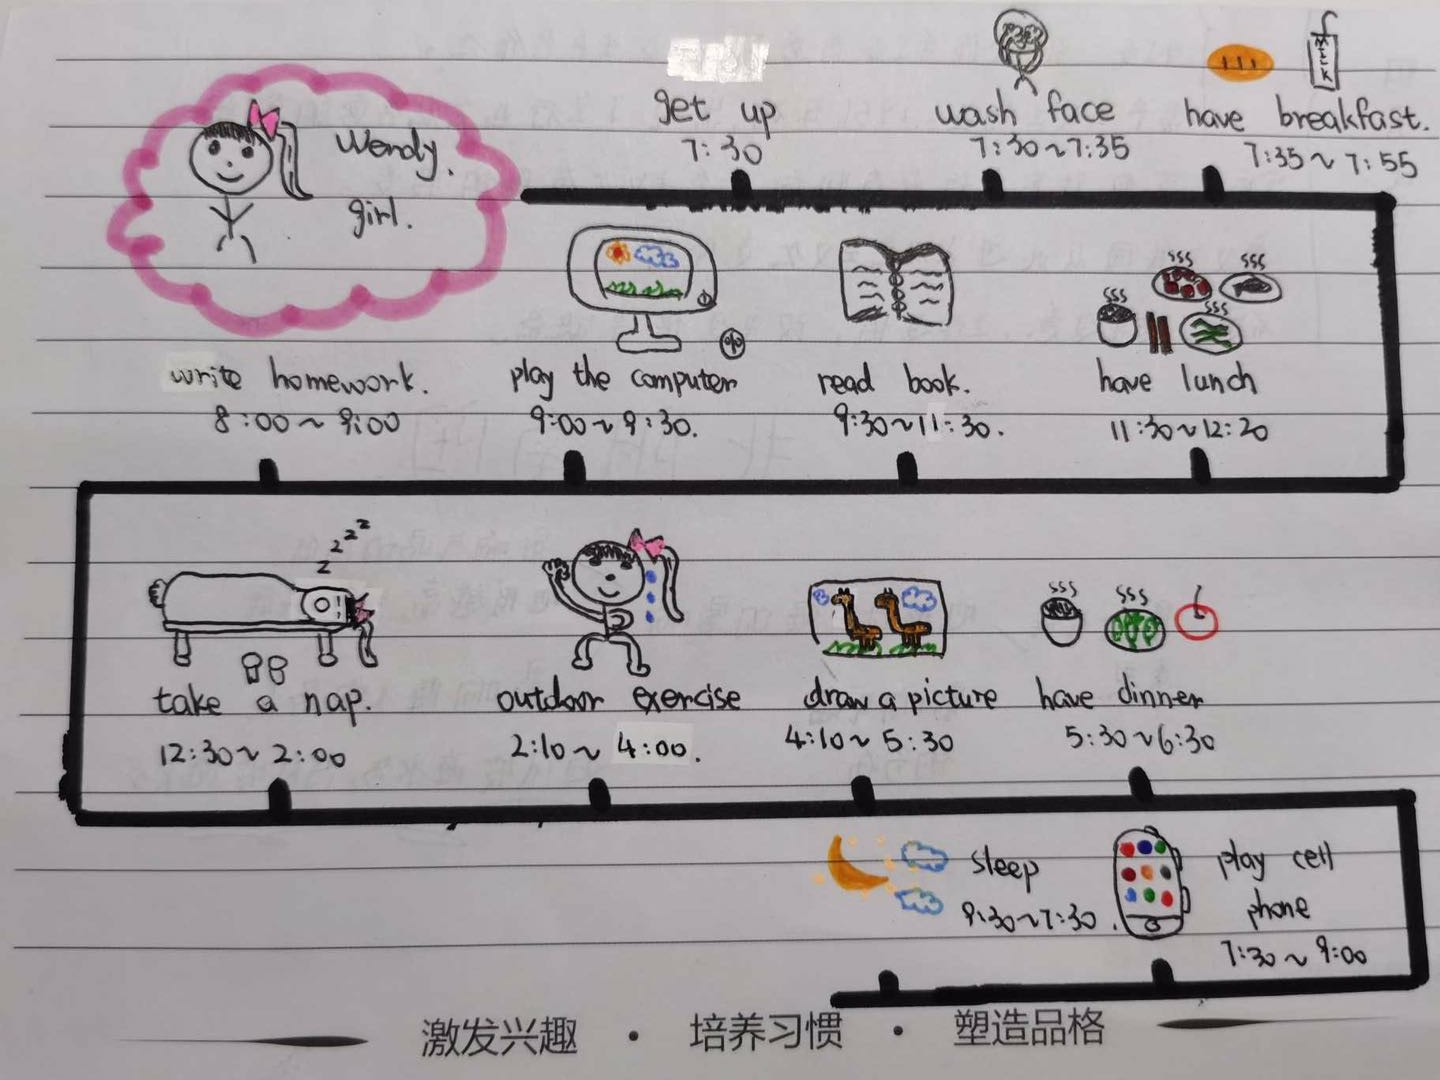 Wendy.
girl.
get up
7:30
wash face
7:30~7:35
MILK
have breakfast.
7:35~7:55
write homework.
8:00~9:00
play the computer
9:00~9:30.
read book.
9:30~11:30.
have lunch
11:30~12:20
zzzz
take a nap.
12:30~2:00
outdoor exercise
2:10~4:00.
draw a picture
4:10~5:30
have dinner
5:30~6:30
sleep
9:30~7:30.
play cell
phone
7:30~9:00
激发兴趣 · 培养习惯 · 塑造品格